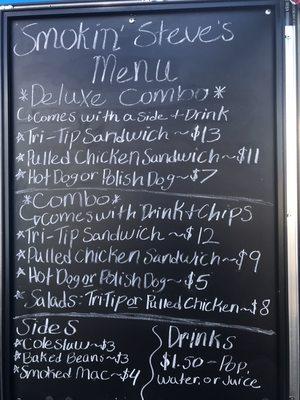 Smokin' Steve's
Menu
*Deluxe Combo*
Comes with a side + Drink
*Tri-Tip Sandwich ~ $13
*Pulled Chicken Sandwich ~ $11
*Hot Dog or Polish Dog ~ $7
*Combo*
comes with Drink + Chips
*Tri-Tip Sandwich ~ $12
*Pulled Chicken Sandwich ~ $9
*Hot Dog or Polish Dog ~ $5
*Salads: Tri Tip or Pulled Chicken ~ $8
Sides
*Coleslaw ~ $3
*Baked Beans ~ $3
*Smoked Mac ~ $4
Drinks
$1.50 - Pop,
water, or Juice